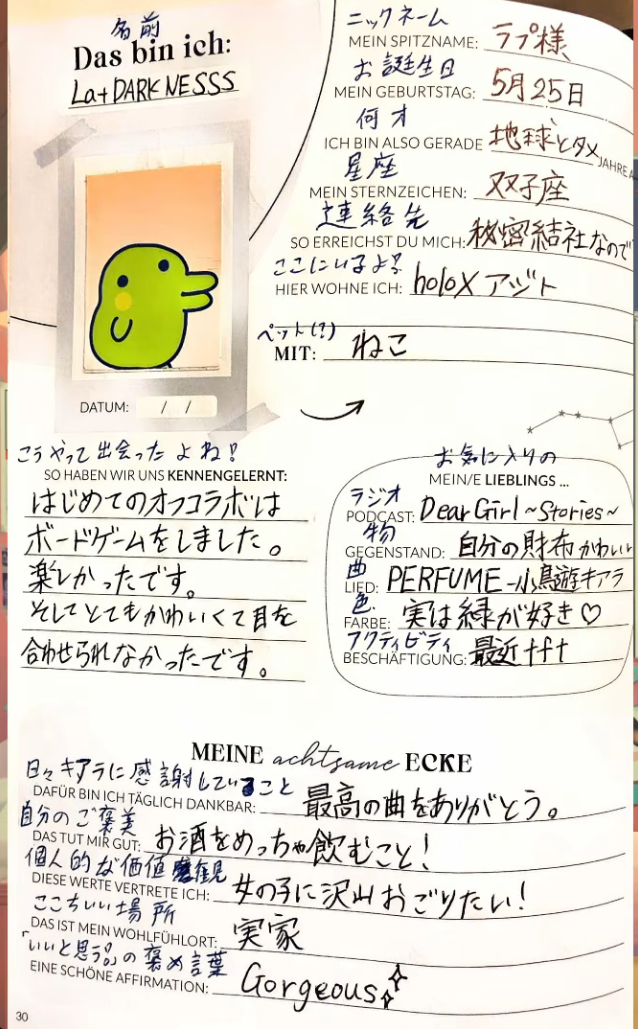 名前
Das bin ich:
La+DARKNESSS
DATUM: / /
ニックネーム
MEIN SPITZNAME: ラプ様
お誕生日
MEIN GEBURTSTAG: 5月25日
何才
ICH BIN ALSO GERADE 地球とタメ JAHRE A
星座
MEIN STERNZEICHEN: 双子座
連絡先
SO ERREICHST DU MICH: 秘密結社なので
ここにいるよ?
HIER WOHNE ICH: holoX アジト
ペット(?)
MIT: ねこ
こうやって出会ったよね!
SO HABEN WIR UNS KENNENGELERNT:
はじめてのオフコラボは
ボードゲームをしました。
楽しかったです。
そしてとてもかわいくて目を
合わせられなかったです。
お気に入りの
MEIN/E LIEBLINGS ...
ラジオ
PODCAST: Dear Girl ~Stories~
物
GEGENSTAND: 自分の財布かわいい
曲
LIED: PERFUME-小鳥遊キアラ
色
FARBE: 実は緑が好き♡
アクティビティ
BESCHÄFTIGUNG: 最近tft
MEINE achtsame ECKE
日々キアラに感謝していること
DAFÜR BIN ICH TÄGLICH DANKBAR: 最高の曲をありがとう。
自分のご褒美
DAS TUT MIR GUT: お酒をめっちゃ飲むこと!
個人的な価値観
DIESE WERTE VERTRETE ICH: 女の子に沢山おごりたい!
ここちいい場所
DAS IST MEIN WOHLFÜHLORT: 実家
「いいと思う。」の褒め言葉
EINE SCHÖNE AFFIRMATION: Gorgeous
30